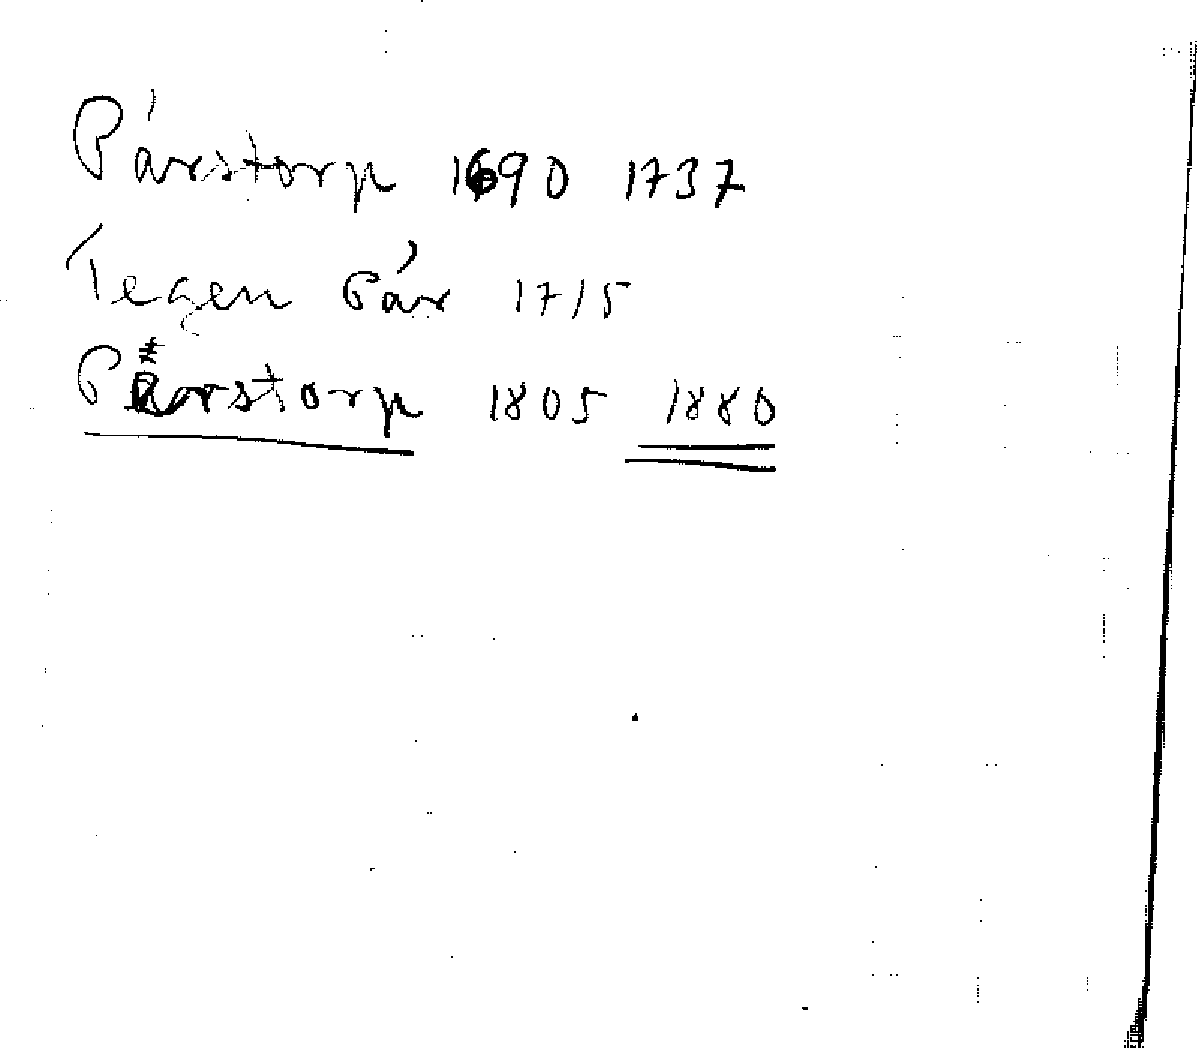 Párstorp 1690 1737
Tegen Pár 1715
Perstorp 1805 1880